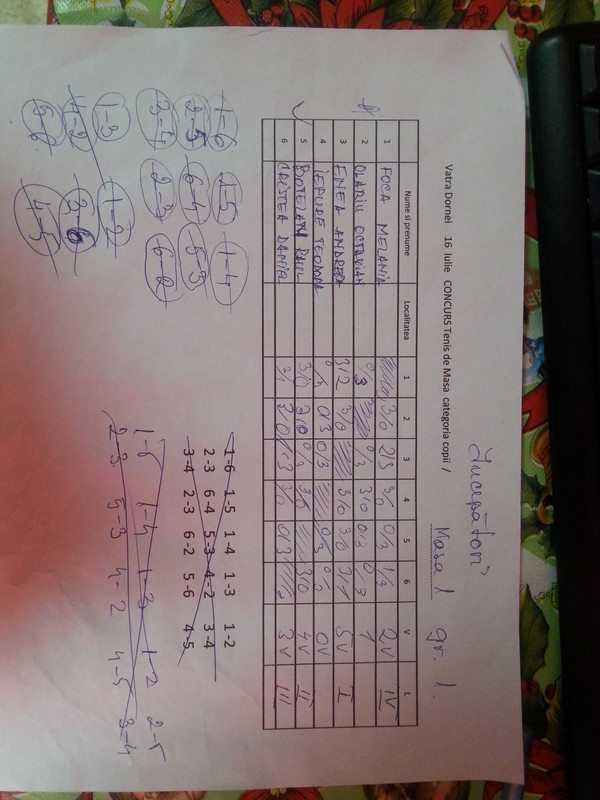 Începători
Vatra Dornei 16 Iulie CONCURS Tenis de Masa categoria copii / Masa 1 gr. 1
Nume si prenume Localitatea 1 2 3 4 5 6 V L
1 FOCA MELANIA 3/0 2/3 3/0 0/3 1/3 2V IV
2 OLARIU OCTAVIAN 0/3 0/3 3/0 0/3 0/3 1
3 ENEA ANDREEA 3/2 3/0 3/0 3/0 3/1 5V I
4 TEODORA 0/3 0/3 0/3 0V
5 BOTEZATU PAUL 3/0 3/0 0/3 3/0 3/0 4V II
6 CRISTEA DANIEL 3/1 3/0 1/3 3/0 0/3 3V III
1-6 1-5 1-4 1-3 1-2
2-3 6-4 5-3 4-2 3-4
3-4 2-3 6-2 5-6 4-5
1-6 1-5 1-4
2-5 6-4 5-3
3-4 2-3 6-2
1-3 1-2
4-2 3-6
5-6 4-5
1-6 1-4 1-3 1-2 2-5
2-3 5-3 4-2 4-5 3-4